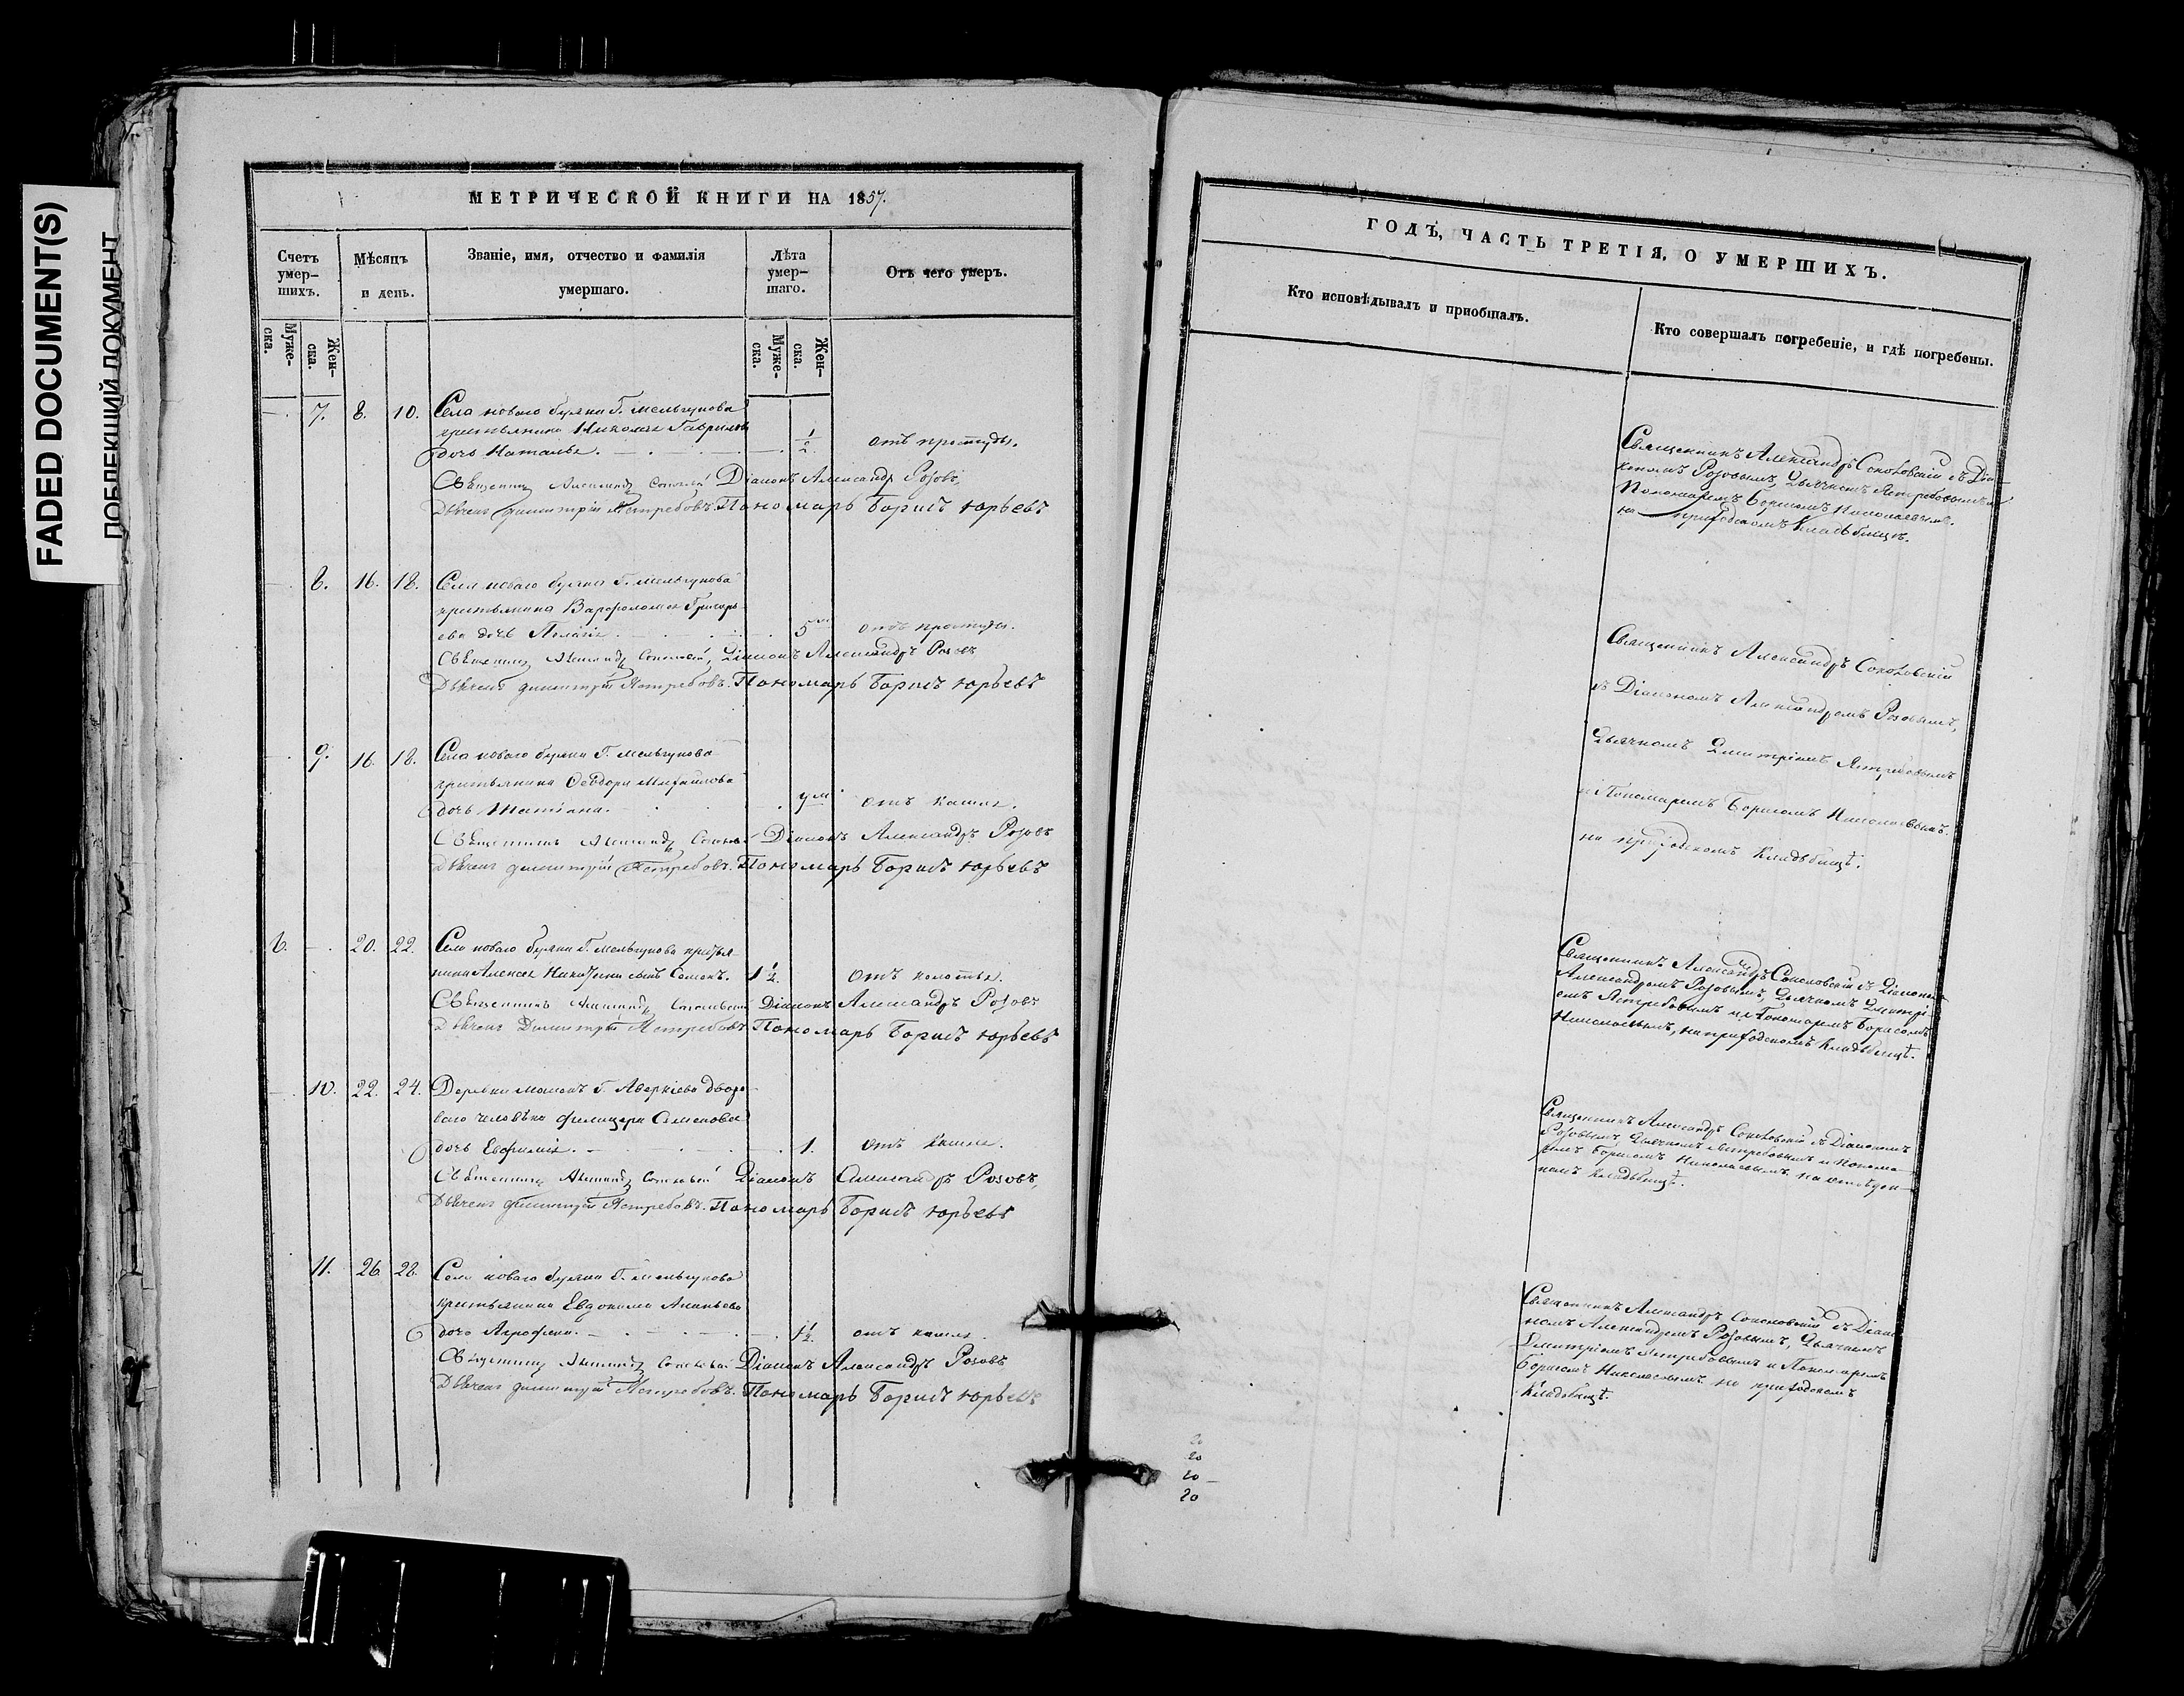 FADED DOCUMENT(S)
ПОБЛЕКШИЙ ДОКУМЕНТ
МЕТРИЧЕСКОЙ КНИГИ НА 1857.
Счетъ умер-шихъ.
Мѣсяцъ и день.
Званіе, имя, отчество и фамилія умершаго.
Лѣта умер-шаго.
Отъ чего умеръ.
Муже-ска.
Жен-ска.
Муже-ска.
Жен-ска.
7. 8. 10. Села новаго буяна Г. Мельгунова
крестьянина Николая Гаврилова
дочь Наталья. 1/2 отъ простуды.
Священникъ Александръ Діаконъ Александръ Розовъ,
Дьячекъ Димитрій Ястребовъ. Пономарь Борисъ Юрьевъ
8. 16. 18. Села новаго буяна Г. Мельгунова
крестьянина Варфоломея Григорь-
ева дочь Пелагія. 5 отъ простуды.
Священникъ Александръ Діаконъ Александръ Розовъ
Дьячекъ Димитрій Ястребовъ. Пономарь Борисъ Юрьевъ
9. 16. 18. Села новаго буяна Г. Мельгунова
крестьянина Ѳеодора Михайлова
дочь Татіана. отъ кашля.
Священникъ Александръ Діаконъ Александръ Розовъ
Дьячекъ Димитрій Ястребовъ. Пономарь Борисъ Юрьевъ
6. 20. 22. Села новаго буяна Г. Мельгунова крестья-
нина Алексея сынъ Семенъ. 1 1/2. отъ колотья.
Священникъ Александръ Діаконъ Александръ Розовъ
Дьячекъ Димитрій Ястребовъ Пономарь Борисъ Юрьевъ
10. 22. 24. Деревни Г. Аверкіева дворо-
ваго человѣка Семенова
дочь Евфимія. 1. отъ кашля.
Священникъ Александръ Діаконъ Александръ Розовъ,
Дьячекъ Димитрій Ястребовъ. Пономарь Борисъ Юрьевъ
11. 26. 28. Села новаго буяна Г. Мельгунова
крестьянина Евдокима Ананьева
дочь Агрофена. 1 1/2. отъ кашля.
Священникъ Александръ Діаконъ Александръ Розовъ
Дьячекъ Димитрій Ястребовъ. Пономарь Борисъ Юрьевъ
ГОДЪ, ЧАСТЬ ТРЕТІЯ, О УМЕРШИХЪ.
Кто исповѣдывалъ и пріобщалъ.
Кто совершалъ погребеніе, и гдѣ погребены.
Священникъ Александръ Соколовскій съ Діа-
кономъ Розовымъ, Дьячкомъ Ястребовымъ и
Пономаремъ Борисомъ Николаевымъ.
на приходскомъ Кладбищѣ.
Священникъ Александръ Соколовскій
съ Діакономъ Александромъ Розовымъ,
Дьячкомъ Дмитріемъ Ястребовымъ
и Пономаремъ Борисомъ Николаевымъ.
на приходскомъ Кладбищѣ.
Священникъ Александръ Соколовскій съ Діакономъ
Александромъ Розовымъ, Дьячкомъ Дмитрі-
емъ Ястребовымъ и Пономаремъ Борисомъ
Николаевымъ, на приходскомъ Кладбищѣ.
Священникъ Александръ Соколовскій съ Діакономъ
Розовымъ, Дьячкомъ Ястребовымъ и Понома-
ремъ Борисомъ Николаевымъ на
Кладбищѣ.
Священникъ Александръ Соколовскій съ Діако-
номъ Александромъ Розовымъ, Дьячкомъ
Дмитріемъ Ястребовымъ и Пономаремъ
Борисомъ Николаевымъ на приходскомъ
Кладбищѣ.
20
20
20
20